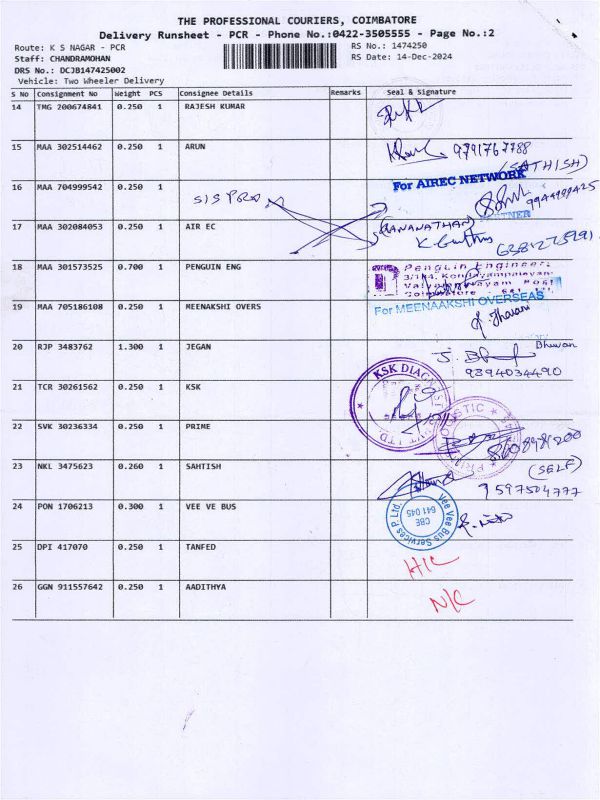 THE PROFESSIONAL COURIERS, COIMBATORE
Delivery Runsheet - PCR - Phone No.:0422-3505555 - Page No.:2
Route: K S NAGAR - PCR
RS No.: 1474250
Staff: CHANDRAMOHAN
RS Date: 14-Dec-2024
DRS No.: DCJB147425002
Vehicle: Two Wheeler Delivery
S No Consignment No Weight PCS Consignee Details Remarks Seal & Signature
14 TMG 200674841 0.250 1 RAJESH KUMAR
15 MAA 302514462 0.250 1 ARUN 9791767788
(SATHISH)
16 MAA 704999542 0.250 1 For AIREC NETWORK
9944999425
17 MAA 302084053 0.250 1 AIR EC
18 MAA 301573525 0.700 1 PENGUIN ENG Penguin Engineers
19 MAA 705186108 0.250 1 MEENAKSHI OVERS For MEENAAKSHI OVERSEAS
20 RJP 3483762 1.300 1 JEGAN Bhuvan
9894034490
21 TCR 30261562 0.250 1 KSK KSK DIAGNOSTIC PVT. LTD.
22 SVK 30236334 0.250 1 PRIME
23 NKL 3475623 0.260 1 SAHTISH (SELF)
9597504777
24 PON 1706213 0.300 1 VEE VE BUS Vee Vee Bus Services P Ltd.
CBE
641 045
25 DPI 417070 0.250 1 TANFED
26 GGN 911557642 0.250 1 AADITHYA N/C